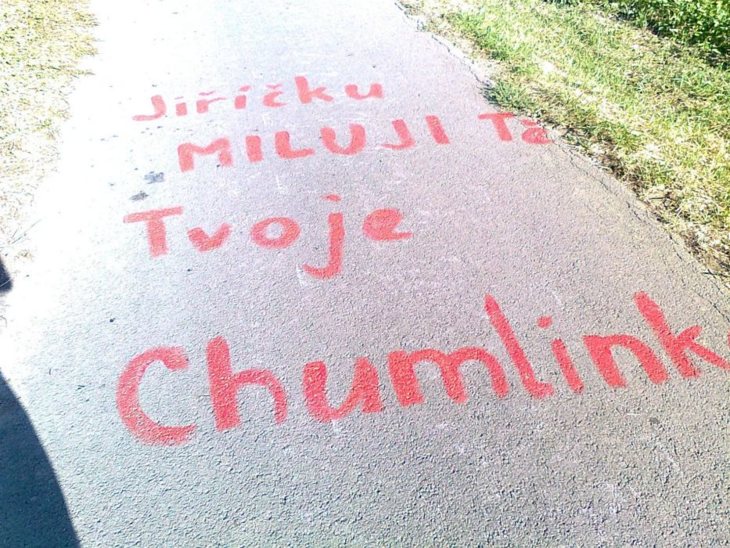 Jiříčku
MILUJI Tě
Tvoje
Chumlink